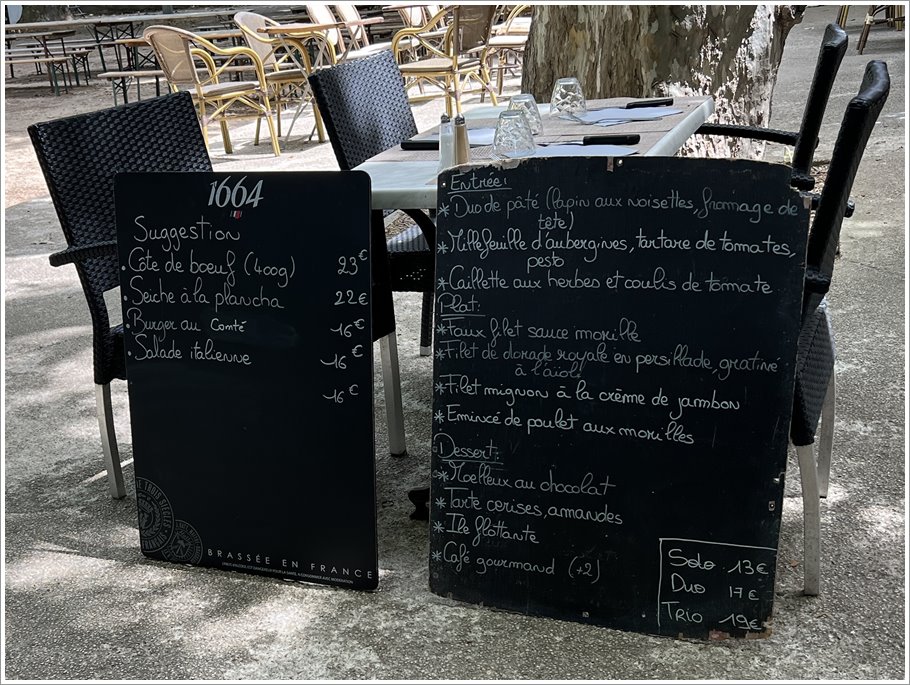 1664
Suggestion
• Côte de boeuf (400g) 23€
• Seiche à la plancha 22€
• Burger au Comté 16€
• Salade italienne 16€
16€
BRASSÉE EN FRANCE
L'ABUS D'ALCOOL EST DANGEREUX POUR LA SANTÉ, À CONSOMMER AVEC MODÉRATION.
Entrée:
* Duo de pâté (lapin aux noisettes, fromage de
tête)
* Millefeuille d'aubergines, tartare de tomates,
pesto
* Caillette aux herbes et coulis de tomate
Plat:
* Faux filet sauce morille
* Filet de dorade royale en persillade, gratiné
à l'aïoli
* Filet mignon à la crème de jambon
* Emincé de poulet aux morilles
Dessert:
* Moelleux au chocolat
* Tarte cerises, amandes
* Ile flottante
* Café gourmand (+2)
Solo 13€
Duo 17€
Trio 19€